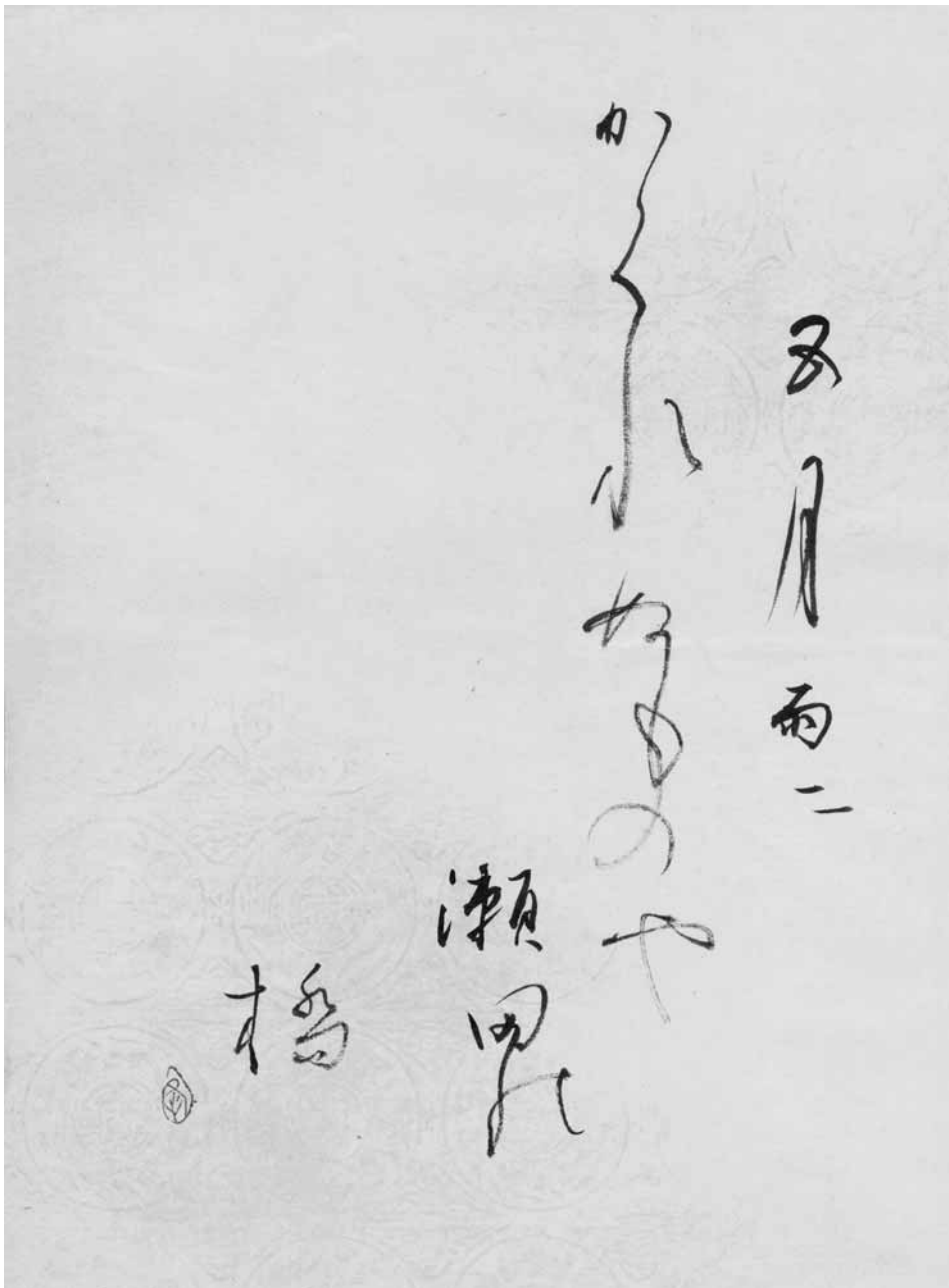 五月雨二
かくれぬものや
瀬田の
橋